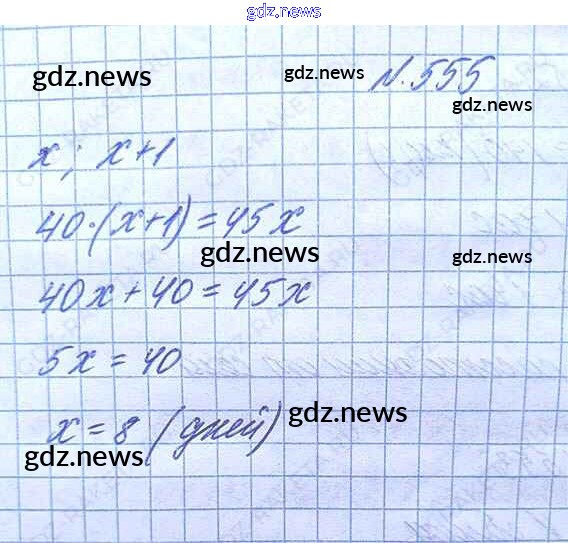 gdz.news
gdz.news
gdz.news
N.555
gdz.news
x; x+1
40·(x+1)=45x
gdz.news
gdz.news
40x+40=45x
5x=40
x=8 (дней)
gdz.news
gdz.news